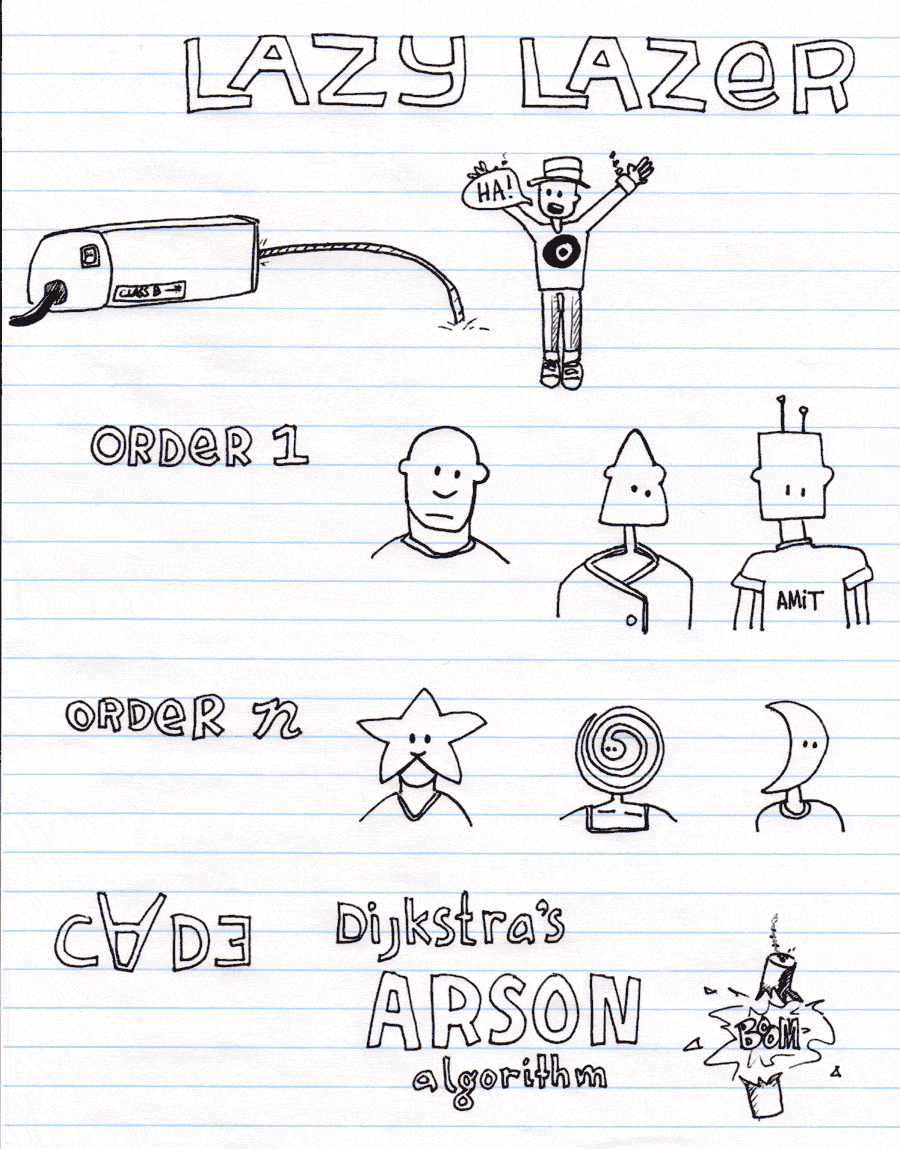 LAZY LAZeR
HA!
CLASS B
ORDeR 1
AMiT
ORDeR n
C∀DƎ
Dijkstra's
ARSON
algorithm
BOOM